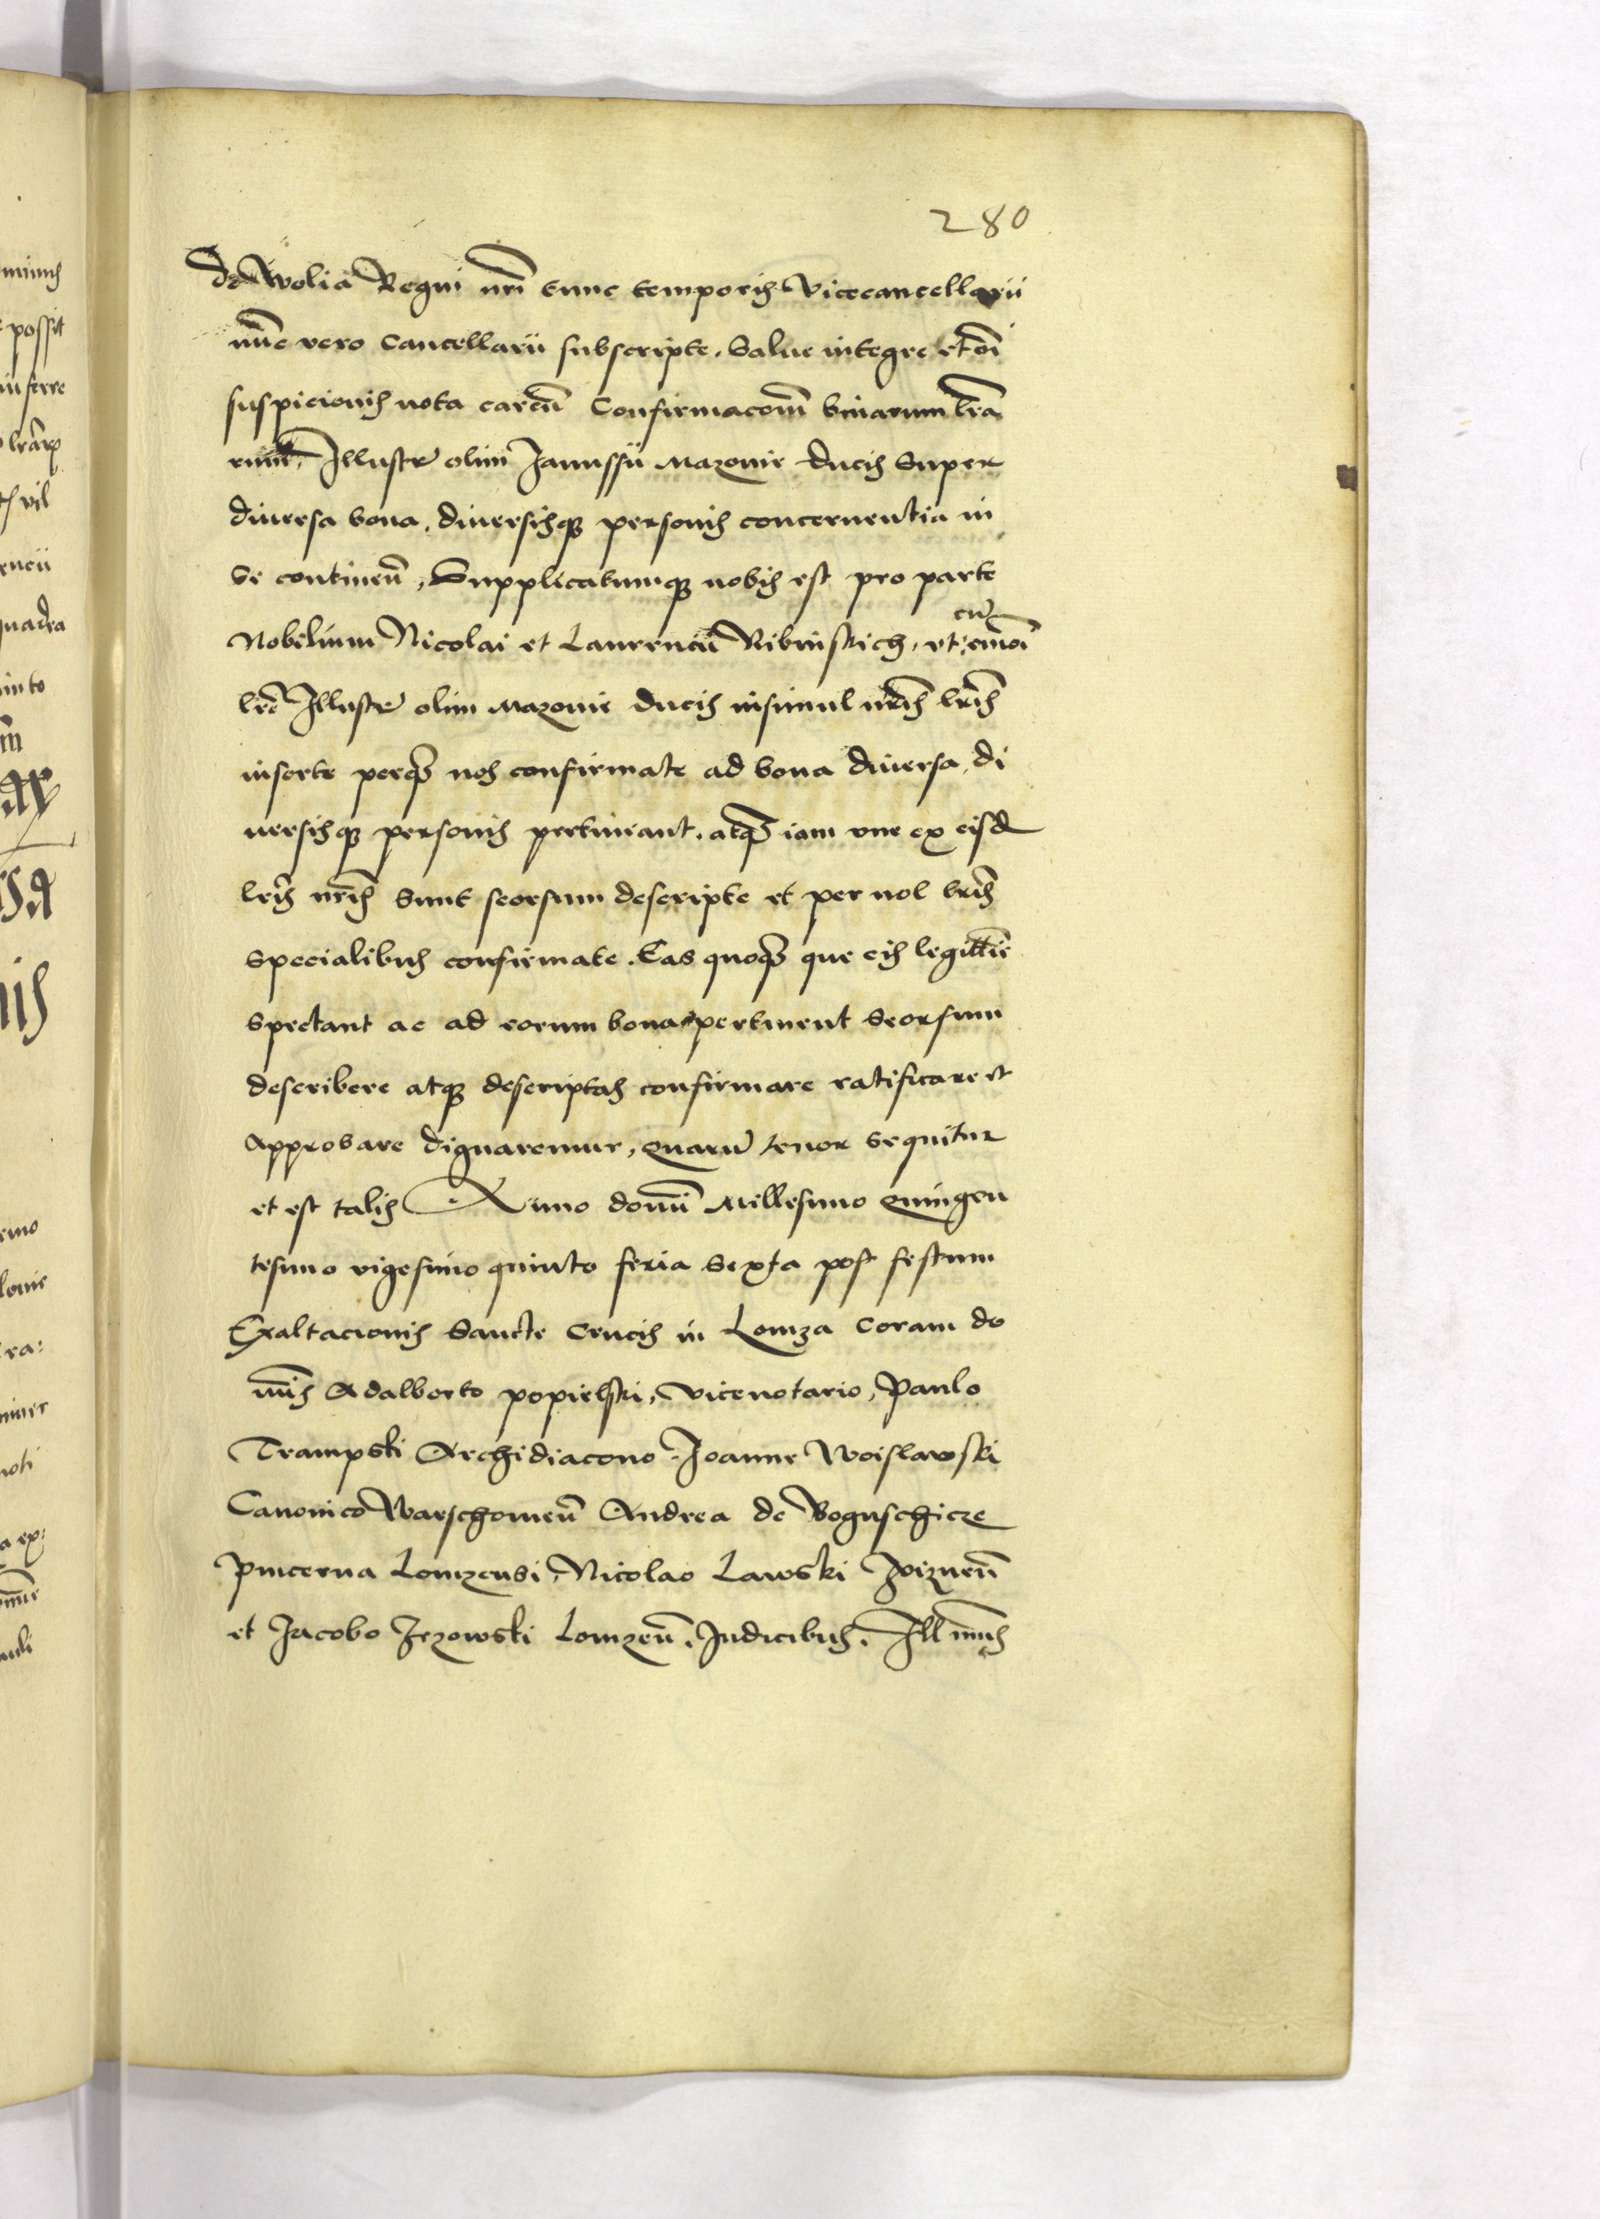 280
de Wolia Regni nri tunc temporis Vicecancellarii
nuc vero Cancellarii subscripte. Salue integre et oi
suspicionis nota caren Confirmacom binarum lra
rum Illustr olim Janussii Mazouie ducis super
diuersa bona, diuersisq personis concernentia in
se continen, Supplicatumq nobis est pro parte
Nobilium Nicolai et Laurencii Ribinskich, ut cu
lre Illustr olim Mazouie ducis insimul nris lris
inserte perq nos confirmate ad bona diuersa, di
uersisq personis pertineant. atq iam une ex eisd
lris nris sunt seorsum descripte et per nos lris
specialibus confirmate. Eas quoq que eis legittime
spectant ac ad eorum bona pertinent seorsum
describere atq descriptas confirmare ratificare et
approbare dignaremur, quaru tenor sequitur
et est talis Anno domini Millesimo quingen
tesimo vigesimo quinto feria sexta post festum
Exaltacionis Sancte Crucis in Lomza coram do
minis Adalberto popielski, vicenotario, Paulo
Trampski Archidiacono Joanne Woislawski
Canonico Warschouien Andrea de Boguschicze
Pincerna Lomzensi, Nicolao Lawski Viznen
et Jacobo Jezowski Lomzen. Judicibus. Ill
mimis
possit
in ferre
lrarx
vil
encii
quadra
into
emo
ra:
noti
a ex